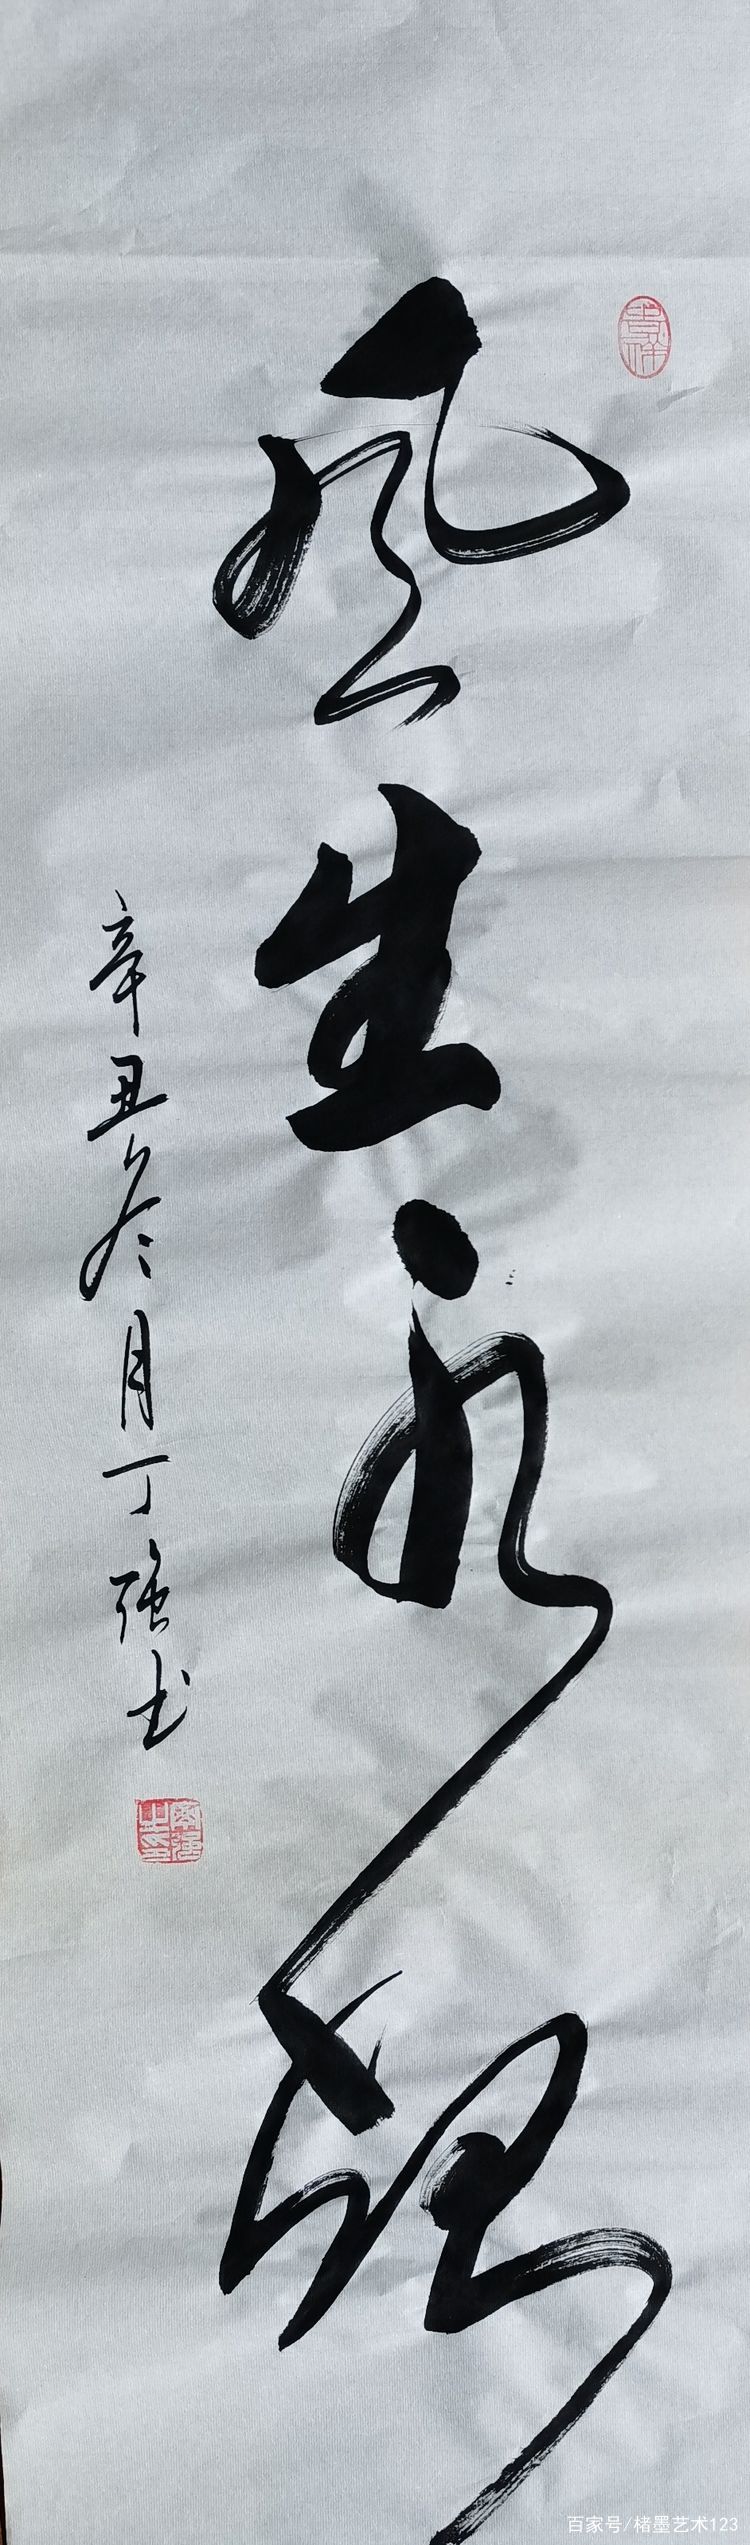 风生水起
辛丑冬月丁强书
吉祥
百家号/楮墨艺术123